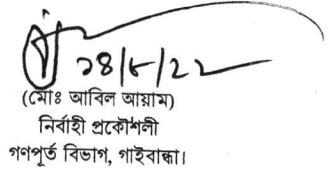 ২৪/৮/২২
(মোঃ আবিল আয়াম)
নির্বাহী প্রকৌশলী
গণপূর্ত বিভাগ, গাইবান্ধা।